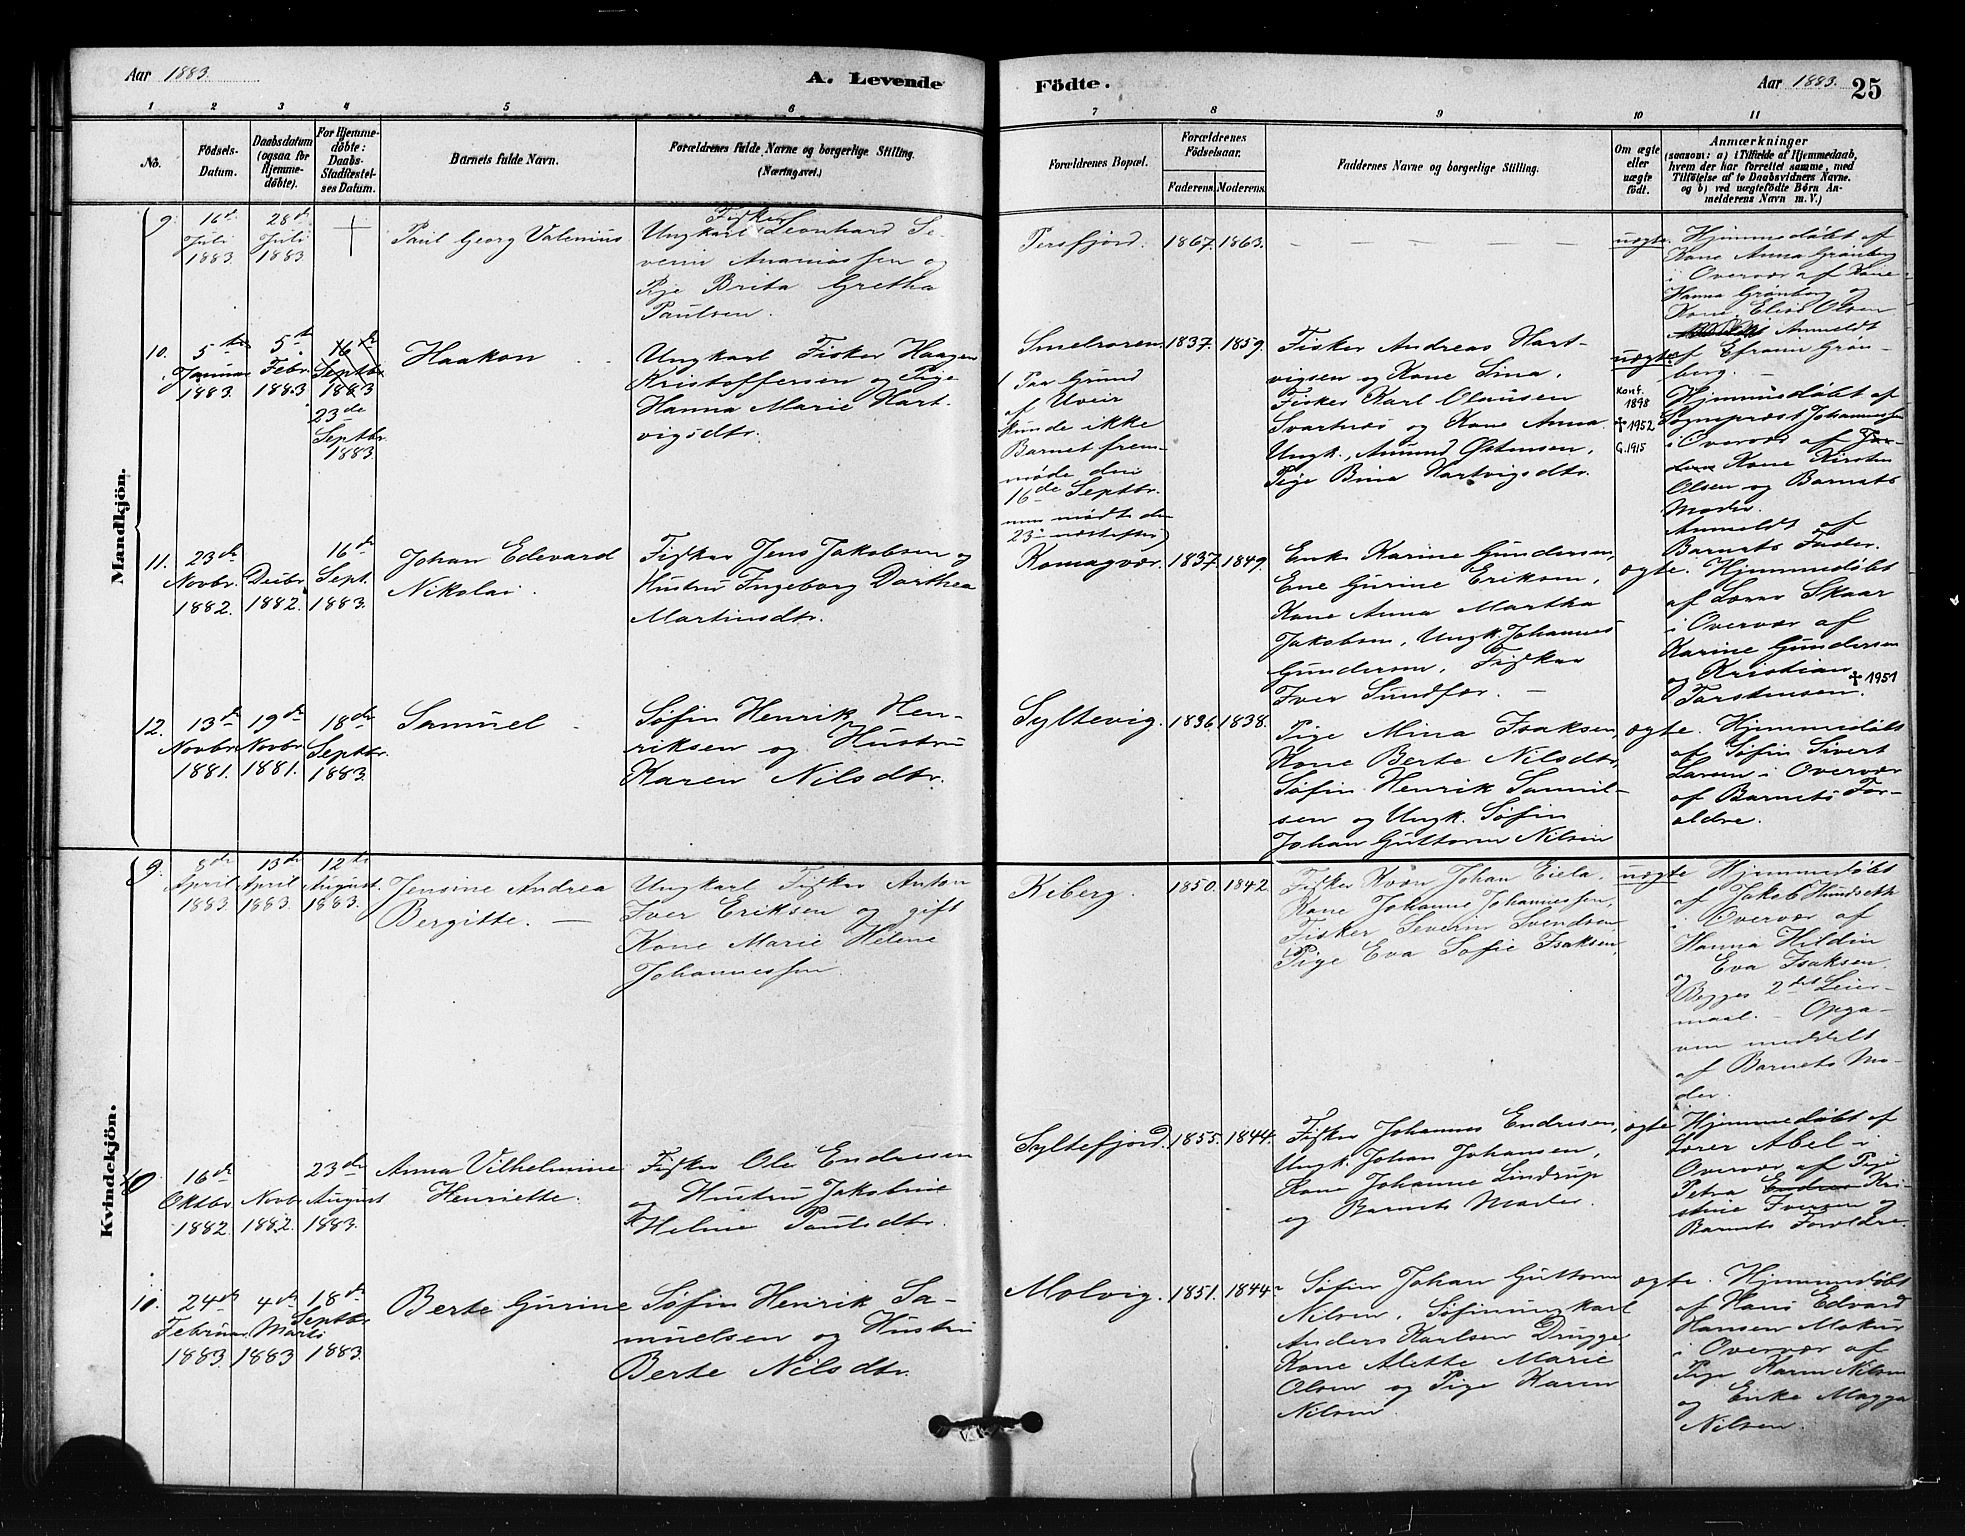 Aar 1883.
A. Levende
Födte.
Aar 1883. 25
1 2 3 4 5 6 7 8 9 10 11
No.
Födsels-
Datum.
Daabsdatum
(ogsaa for
Hjemme-
döbte).
For Hjemme-
döbte:
Daabs-
Stadfæstel-
ses Datum.
Barnets fulde Navn.
Forældrenes fulde Navne og borgerlige Stilling.
(Næringsvei.)
Forældrenes Bopæl.
Forældrenes
Födselsaar.
Faderens. Moderens.
Faddernes Navne og borgerlige Stilling.
Om ægte
eller
uægte
födt.
Anmærkninger
(saasom: a) i Tilfælde af Hjemmedaab,
hvem der har forrettet samme, med
Tilföielse af to Daabsvidners Navne.
og b) ved uægtefödte Börn An-
melderens Navn m. V.)
Mandkjön.
9.
16de
Juli
1883.
28de
Juli
1883
Paul Georg Valenius
Fisker
Ungkarl Leonhard Se-
verin Ananiassen og
Pige Brita Gretha
Paulsen.
Persfjord.
1867.
1863.
uægte.
Hjemmedøbt af
Kone Anna Grønberg
i Overvær af Kone
Hanna Grønberg og
Kone Elias Olsen
Anmeldt
af Efraim Grøn-
berg.
10.
5te
Januar
1883.
5te
Febr.
1883
16de
Septbr.
1883
23de
Septbr.
1883.
Haakon
Ungkarl Fisker Haagen
Kristoffersen og Pige
Hanna Marie Hart-
vigsdtr.
Smelroren.
Paa Grund
af Uveir
kunde ikke
Barnet frem-
møde den
16de Septbr.
men mødte den
23de næstefter
1837.
1859.
Fisker Andreas Hart-
vigsen og Kone Lina,
Fisker Karl Olausen
Svartnes og Kone Anna
Ungk. Amund Østensen,
Pige Bina Hartvigsdtr.
uægte.
Konf.
1898
✝1952
G. 1915
Hjemmedøbt af
Sognepræst Johannessen
i Overvær af
Kone Kirsten
Olsen og Barnets
Moder.
Anmeldt af
Barnets Fader.
11.
23de
Novbr.
1882
Decbr.
1882.
16de
Sept.
1883.
Johan Edevard
Nikolai.
Fisker Jens Jakobsen og
Hustru Ingeborg Dorthea
Martinsdtr.
Komagvær.
1837.
1849.
Enke Karine Gundersen,
Ene Gurine Eriksen,
Kone Anna Martha
Jakobsen, Ungk. Johannes
Gundersen, Fisker
Iver Sundfær.
ægte.
Hjemmedøbt
af Lærer Skaar
i Overvær af
Karine Gundersen
og Kristian
Torstensen.
✝1951
12.
13de
Novbr.
1881.
19de
Novbr.
1881.
18de
Septbr.
1883.
Samuel
Søfin Henrik Hen-
riksen og Hustru
Karen Nilsdtr.
Syltevig.
1836.
1838.
Pige Mina Isaksen,
Kone Berte Nilsdtr,
Søfin Henrik Samuel-
sen og Ungk. Søfin
Johan Guttorm Nilsen
ægte.
Hjemmedøbt
af Søfin Sivert
Larsen i Overvær
af Barnets For-
ældre.
Kvindekjön.
9.
8de
April
1883.
13de
April
1883.
12te
August.
1883.
Jensine Andrea
Bergitte.
Ungkarl Fisker Anton
Iver Eriksen og gift
Kone Marie Helene
Johannessen.
Kiberg.
1850.
1842
Fisker Kvæn Johan Eiela,
Kone Johanne Johannessen,
Fisker Severin Svendsen,
Pige Eva Sofie Isaksen.
uægte
Hjemmedøbt
af Jakob Hundsekk
i Overvær af
Hanna Hildin
og Eva Isaksen.
Begges 2det Leier-
maal. - Opga-
ven meddelt
af Barnets Mo-
der.
16de
Oktbr.
1882.
Novbr.
1882.
23de
August
1883.
Anna Vilhelmine
Henriette.
Fisker Ole Endresen
og Hustru Jakobine
Helene Paulsdtr.
Syltefjord.
1855.
1844.
Fisker Johannes Endresen,
Ungk. Johan Johansen,
Kone Johanne Lindrup
og Barnets Moder.
ægte
Hjemmedøbt af
Lærer Abel i
Overvær af Pige
Petra Kri-
stine Iversen og
Barnets Forældre.
10.
24de
Februar
1883.
4de
Marts
1883
18de
Septbr
1883.
Berte Gurine
Søfin Henrik Sa-
muelsen og Hustru
Berte Nilsdtr.
Molvig.
1851.
1844.
Søfin Johan Guttorm
Nilsen, Søfinungkarl
Anders Karlsen Drugge,
Kone Alette Marie
Olsen og Pige Karen
Nilsen.
ægte.
Hjemmedøbt
af Hans Edvard
Hansen Makur
i Overvær af
Pige Karen Nilsen
og Enke Magga
Nilsen.